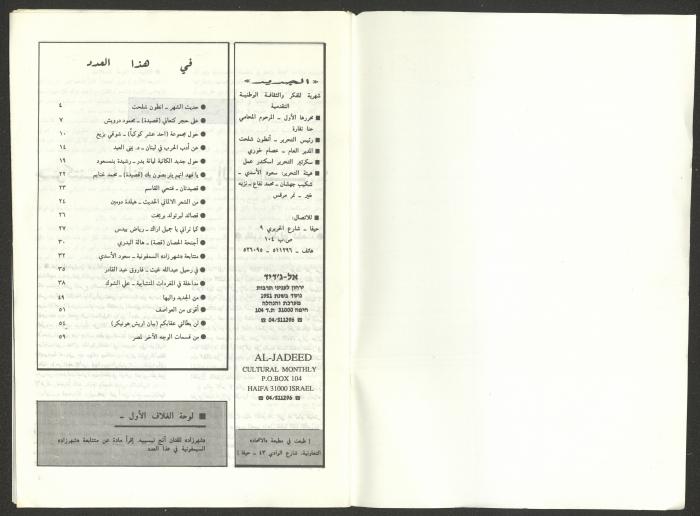 « الجديد »
شهرية للفكر والثقافة الوطنية
التقدمية
■ محررها الأول ـ المرحوم المحامي
حنا نقارة
■ رئيس التحرير ـ أنطون شلحت
■ المدير العام ـ عصام خوري
■ سكرتير التحرير اسكندر عمل
■ هيئة التحرير: سعود الأسدي ـ
شكيب جهشان ـ محمد نفاع ـ نزيه
خير ـ نمر مرقس
■ للاتصال:
حيفا ـ شارع الحريري ٩
ص.ب ١٠٤
هاتف ـ ٥١١٢٩٦ ـ ٥٢٦٠٩٥
אל-ג'דיד
ירחון לעניני תרבות
נוסד בשנת 1951
מערכת והנהלה
חיפה 31000 ת.ד 104
☎ 04/511296 ☎
AL-JADEED
CULTURAL MONTHLY
P.O.BOX 104
HAIFA 31000 ISRAEL
☎ 04/511296 ☎
( طبعت في مطبعة «الاتحاد»
التعاونية، شارع الوادي ٤٣ ـ حيفا )
في هذا العدد
● حديث الشهر ـ انطون شلحت ٤
● على حجر كنعاني (قصيدة) ـ محمود درويش ٧
● حول مجموعة (احد عشر كوكباً) ـ شوقي بزيع ١٠
● عن أدب الحرب في لبنان ـ د. يمنى العيد ١٤
● حول جديد الكاتبة ليانة بدر ـ رشيدة بنمسعود ١٩
● يا فهد انهم يتربصون بك (قصيدة) ـ محمد غنايم ٢٢
● قصيدتان ـ فتحي القاسم ٢٣
● من الشعر الالماني الحديث ـ هيلدة دومين ٢٤
● قصائد لبرتولد بريخت ٢٦
● كما تراني يا جميل اراك ـ رياض بيدس ٢٧
● أجنحة الحصان (قصة) ـ هالة البدري ٣٠
● متتابعة «شهرزاد» السمفونية ـ سعود الأسدي ٣٢
● في رحيل عبدالله غيث ـ فاروق عبد القادر ٣٥
● مداخلة في المفردات المتشابهة ـ علي الشوك ٣٨
● من الجديد واليها ٤٩
● أقوى من العواصف ٥١
● لن يطالني عقابكم (بيان اريش هونيكر) ٥٤
● من قسمات الوجه الآخر لمصر ٥٩
■ لوحة الغلاف الأول ـ
«شهرزاد» للفنان يقرأ مادة عن متتابعة «شهرزاد»
السيمفونية في هذا العدد